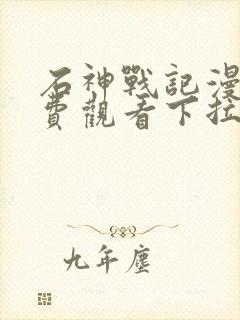 石神戰記漫
費觀看下拉
九年塵